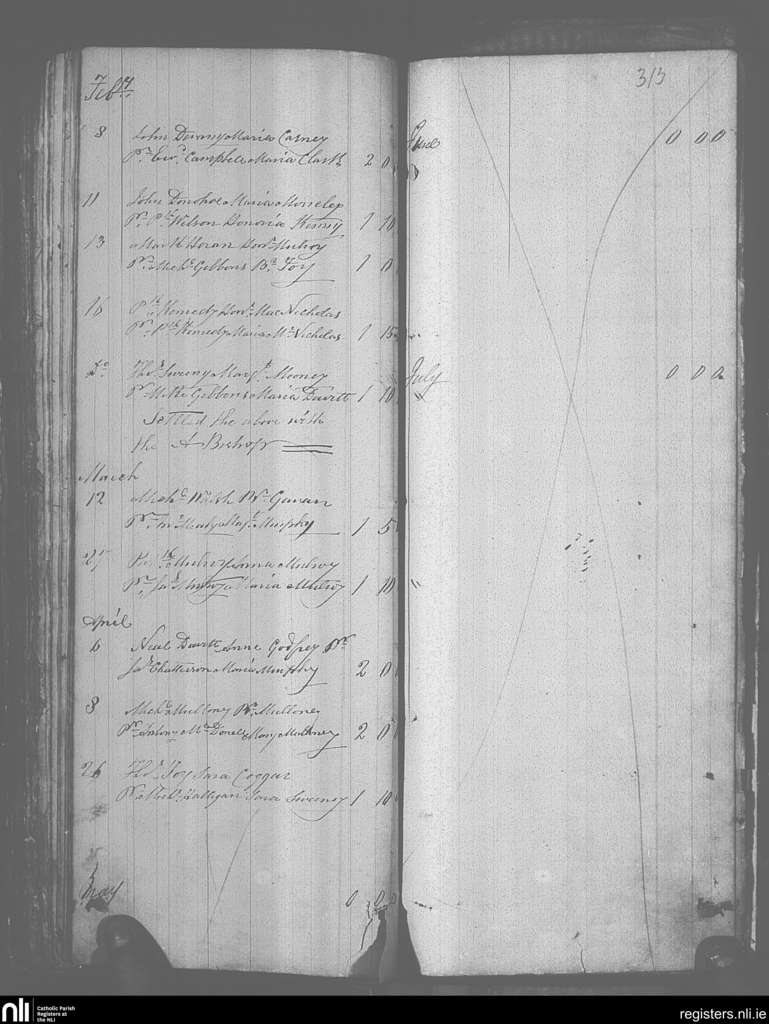 Feby
8 John Maria Carney
Pr. Campbell Maria Clark 2 0
11 John Donohoe Maria
Pr. Pk Wilson Honoria Kenny 1 10
13 Mark Horan Honr Mulroy
Pr. Michl Gibbons Br. Foy 1 0
16 Pk Kennedy Honr MacNicholas
Pr. Pk Kennedy Maria McNicholas 1 15
Do Thos Sweeny Margt Mooney
Pr Mitte Gibbons Maria Davitt 1 10
Settled the above with
the A Bishop
March
12 Michl Walsh Br. Gavan
Pr. Healy Mary Murphy 1 5
27 Mulroy Anna Mulroy
Pr. Jas Maria Mulroy 1 10
April
6 Neal Davitt Anne Godfrey Pr
Jas Chatterson Maria Murphy 2 0
8 Michl Mullony Br. Mullony
Pr. Antony McDonel Mary Mulroney 2 0
26 Thos Foy Sara Coggar
Pr. Michl Halligan Sara Sweeney 1 10
May 0 0 0
313
June 0 00
July 0 0 0
nli
Catholic Parish
Registers at
the NLI
registers.nli.ie